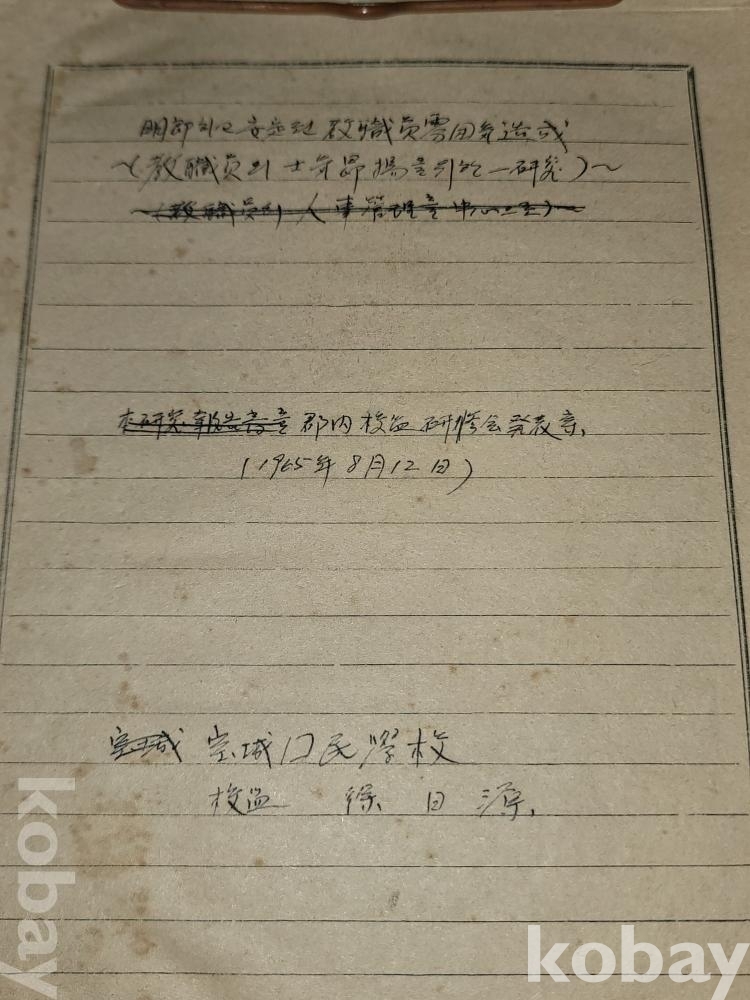 明朗하고 安定된 敎職員雰囲気造成
~(敎職員의 士気昻揚을 위한 一研究)~
~(敎職員의 人事管理을 中心으로)~
本研究報告書는 郡内 校監 研修会 発表
(1965年 8月 12日)
宝城 宝城口民学校
校監 徐 日 源.
kobay
kobay